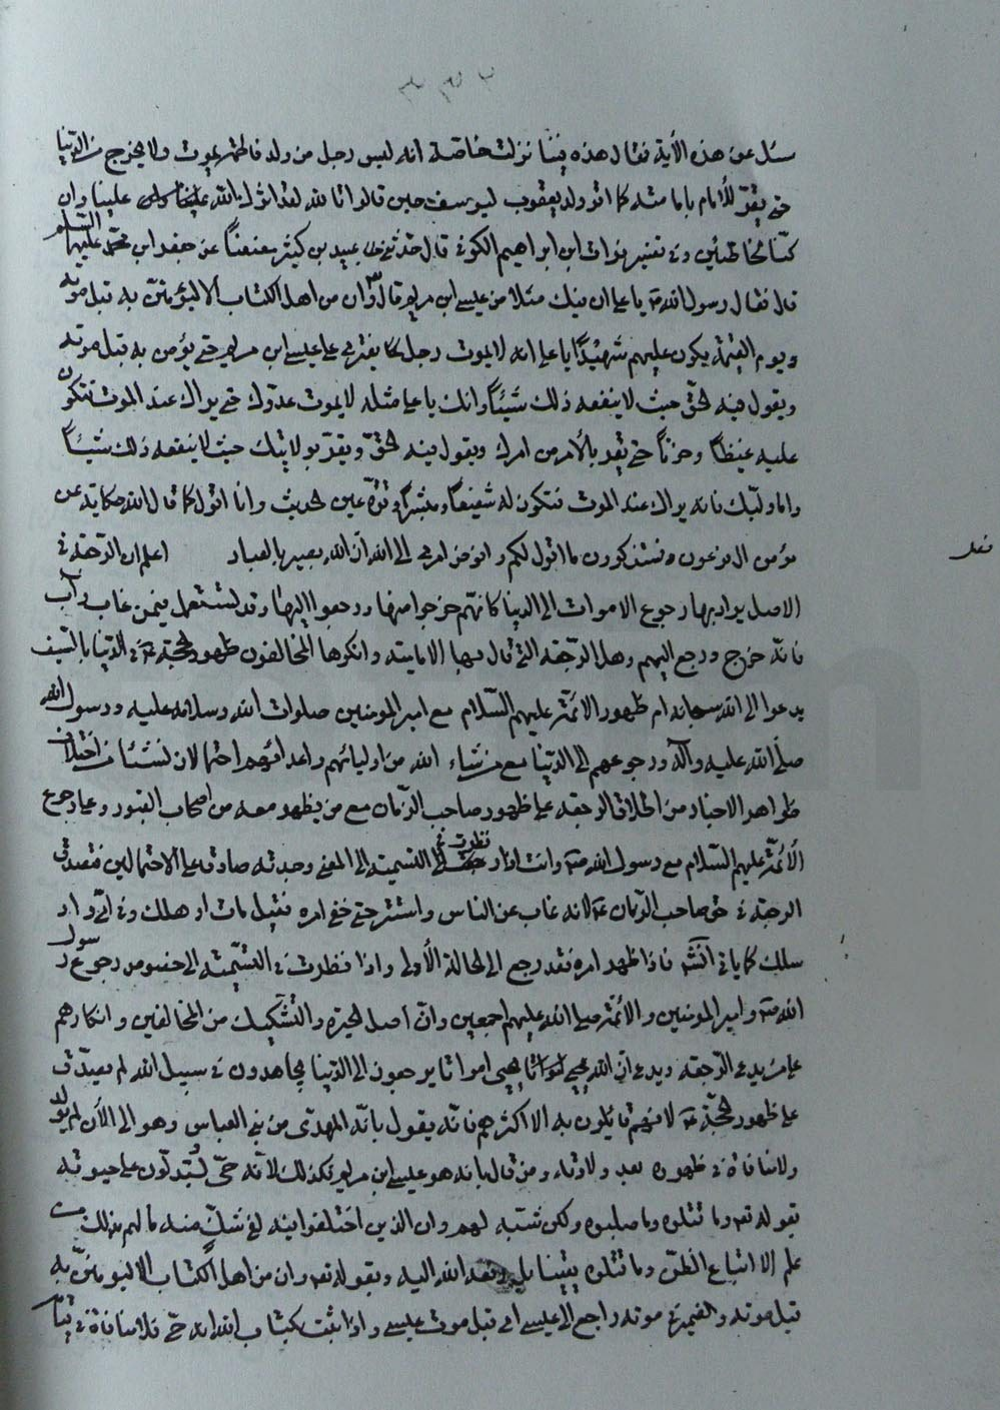 سئل عن هذه الأية فقال هذه فينا نزلت خاصة انه ليس رجل من ولد فاطمة يموت ولا يخرج من الدنيا
حتى يقر للأمام بامامته كما اقر ولد يعقوب ليوسف حين قالوا تالله لقد اثرك الله علينا وان
كنا لخاطئين وفي تفسير فرات ابن ابراهيم الكوفي قال حدثني عبيد بن كثير معنعنًا عن جعفر ابن محمد عليهما السلام
قال فقال رسول الله ص يا علي ان فيك مثلا من عيسى ابن مريم قال تع وان من اهل الكتاب الا ليؤمنن به قبل موته
ويوم القيمة يكون عليهم شهيدًا يا علي انه لا يموت رجل يفتري على عيسى ابن مريم حتى يؤمن به قبل موته
ويقول فيه الحق حيث لا ينفعه ذلك شيئًا وانك يا علي مثله لا يموت عدوك حتى يراك عند الموت فتكون
عليه غيظًا وحزنًا حتى يقر بالأمر من امرك ويقول فيك الحق ويقر بولايتك حيث لا ينفعه ذلك شيئًا
واما وليك فانه يراك عند الموت فتكون له شفيعًا ومبشرًا وقرة عين الحديث وانا اقول كما قال الله حكاية عن
مؤمن ال فرعون فستذكرون ما اقول لكم وافوض امري الى الله ان الله بصير بالعباد اعلم ان الرجعة في
فصل
الاصل يراد بها رجوع الاموات الى الدنيا كانهم خرجوا منها ورجعوا اليها وقد تستعمل فيمن غاب وآب
فانه خرج ورجع اليهم وهل الرجعة التي قال بها الامامية وانكرها المخالفون ظهور الحجة ع في الدنيا بالسيف
يدعوا الى الله سبحانه ام ظهور الائمة عليهم السلام مع امير المؤمنين صلوات الله وسلامه عليه ورسول الله
صلى الله عليه وآله ورجوعهم الى الدنيا مع من شاء الله من اوليائهم واعدائهم احتمالان نشئا من اختلاف
ظواهر الاخبار من اطلاق الرجعة على ظهور صاحب الزمان مع من يظهر معه من اصحاب القبور وعلى رجوع
الأئمة عليهم السلام مع رسول الله ص وانت اذا نظرت في التسمية الى المعنى وجدته صادقه على الاحتمالين فتصدق
الرجعة في حق صاحب الزمان ع لانه غاب عن الناس واستتر حتى خفي امره فقيل مات او هلك وفي اي واد
سلك كما ياتي آنفًا فاذا ظهر امره فقد رجع الى الحالة الأولى واذا نظرت في التسمية الى خصوص رجوع رسول
الله ص وامير المؤمنين والأئمة صلى الله عليهم اجمعين وان اصل الحيرة والتشكيك من المخالفين وانكارهم
على من يدعي الرجعة ويدعي ان الله يحيي امواتا يرجعون الى الدنيا يجاهدون في سبيل الله لم تصدق
على ظهور الحجة ع لانهم قائلون به الا اكثرهم فانه يقول بانه المهدي من بني العباس وهو الى الأن لم يولد
ولا منافاة في ظهوره بعد ولادته ومن قال بانه هو عيسى ابن مريم فكذلك لأنه حي يستدلون على حيوته
بقوله تع وما قتلوه وما صلبوه ولكن شبه لهم وان الذين اختلفوا فيه لفي شك منه ما لهم بذلك من
علم الا اتباع الظن وما قتلوه يقينا بل رفعه الله اليه وبقوله تع وان من اهل الكتاب الا ليؤمنن به
قبل موته والضمير في موته راجع الى عيسى اي قبل موت عيسى واذا ثبت بكتاب الله انه حي فلا منافاة في